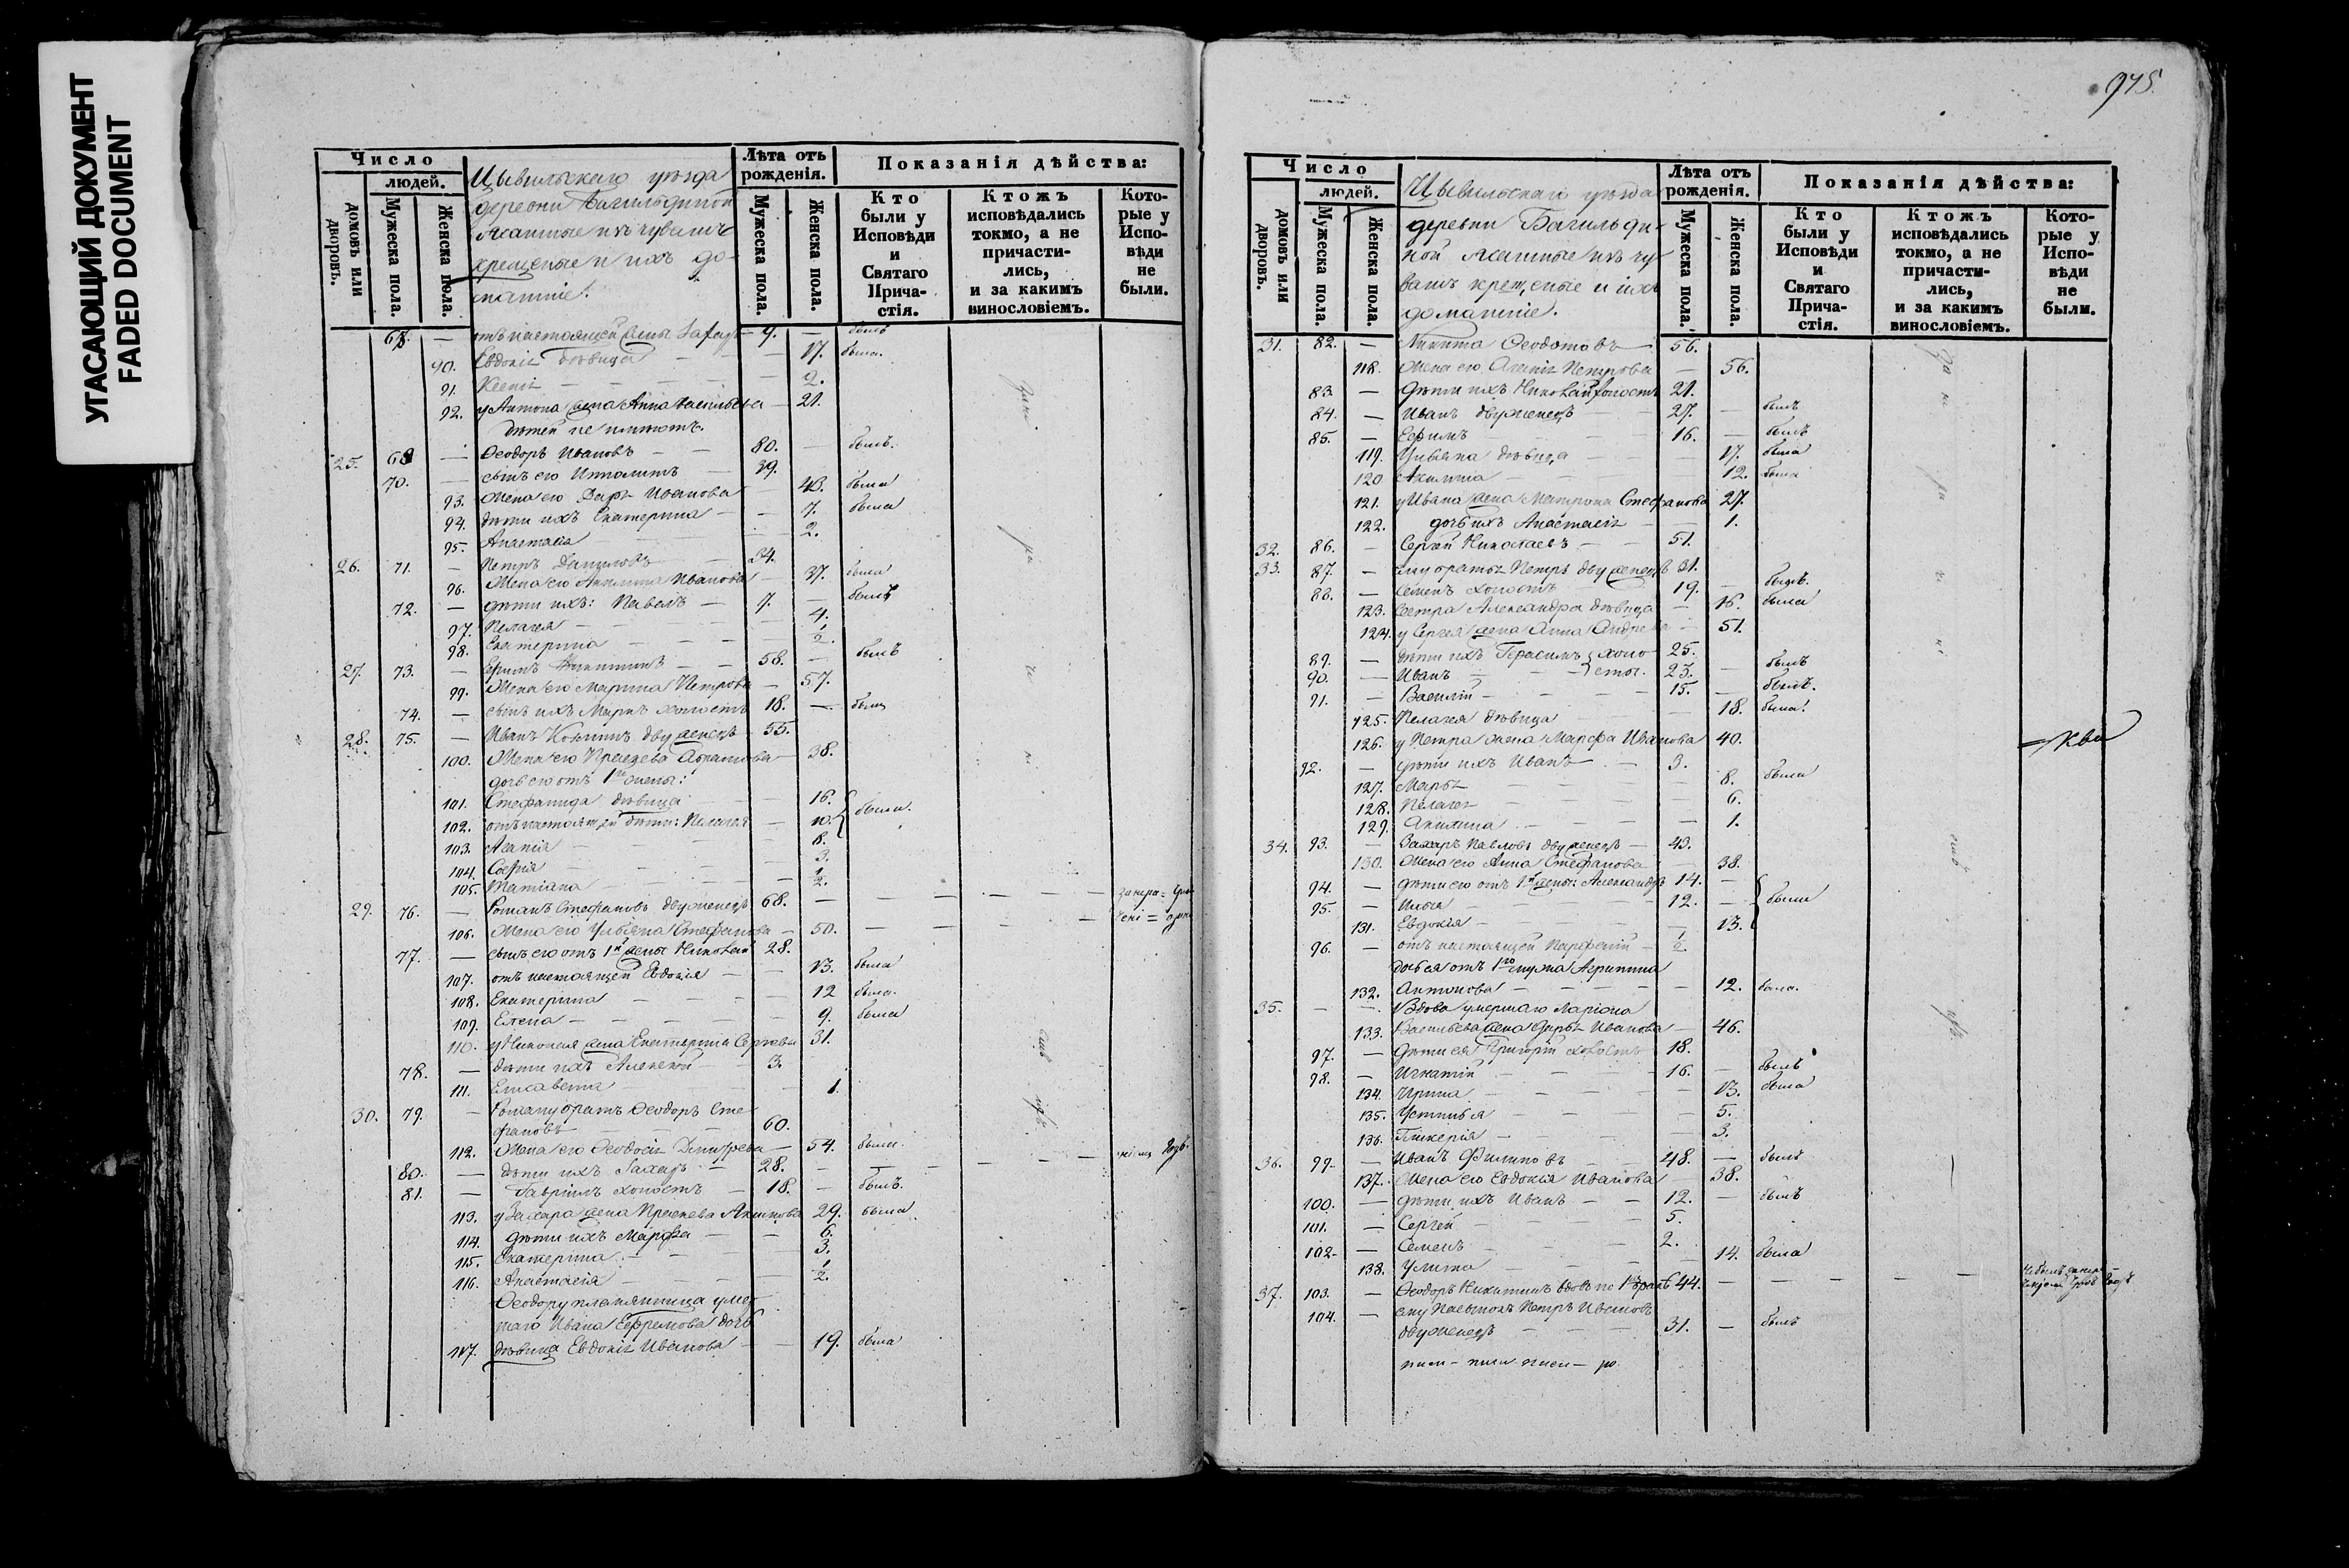 УГАСАЮЩИЙ ДОКУМЕНТ
FADED DOCUMENT
Число
людей.
домовъ или дворовъ.
Мужеска пола.
Женска пола.
Цывильскаго уѣзда
деревни Багильдиной
ясашные изъ чувашъ
крещеные и ихъ до-
машніе.
Лѣта отъ рожденія.
Мужеска пола.
Женска пола.
Показанія дѣйства:
Кто были у Исповѣди и Святаго Прича- стія.
Ктожъ исповѣдались токмо, а не причасти- лись, и за какимъ винословіемъ.
Кото- рые у Испо- вѣди не были.
68. — отъ настоящей жены Захаръ — 9. — былъ
90. Евдокія дѣвица — — 17. была.
91. Ксенія — — 2.
92. у Антона жена Анна Васильева — 21.
дѣтей не имѣютъ.
25. — Ѳеодоръ Ивановъ — 80. — былъ.
70. — сынъ его Ипполитъ — 39.
93. Жена его Дарья Иванова — 40. была
94. дѣти ихъ Екатерина — 7. была
95. Анастасія — 2.
26. 71. — Петръ Даниловъ — 34.
96. Жена его Акилина Иванова — 37. была
72. — дѣти ихъ: Павелъ — 7. — былъ
97. Пелагея — 4.
98. Екатерина — 1/2.
27. 73. — Ефимъ Никитинъ — 58. — былъ
99. Жена его Марина Петрова — 57.
74. — сынъ ихъ Маркъ холостъ 18. — былъ
28. 75. — Иванъ двуженецъ 55.
100. Жена его 38.
дочь его отъ 1й жены:
101. Стефанида дѣвица — 16.
102. отъ настоящей дѣти: Пелагея — 10. были.
103. Агапія — 8.
104. Софія — 3.
105. Татіана — 1/2.
29. 76. — Романъ Стефановъ двуженецъ 68. —
106. Жена его Ульяна Стефанова — 50. —
77. — сынъ его отъ 1й жены Николай 28.
107. отъ настоящей Евдокія — 13. была
108. Екатерина — 12 была.
109. Елена — 9. была
110. у Николая жена Екатерина Сергѣева 31.
78. — дѣти ихъ Алексѣй — 3.
111. Елисавета — 1.
30. 79. — Роману братъ Ѳеодоръ Сте-
фановъ — 60.
112. Жена его Ѳеодосія Димитрева — 54. была.
80. — дѣти ихъ Захаръ — 28. —
81. — Гавріилъ холостъ — 18. — былъ.
113. у Захара жена 29. была
114. дѣти ихъ Марѳа — 6.
115. Екатерина — 3.
116. Анастасія — 1/2.
Ѳеодору племянница умер
шаго Ивана Ефремова дочь
117. дѣвица Евдокія Иванова — 19. была
975.
Число
людей.
домовъ или дворовъ.
Мужеска пола.
Женска пола.
Цывильскаго уѣзда
деревни Багильди-
ной ясашные изъ чу-
вашъ крещеные и ихъ
домашніе.
Лѣта отъ рожденія.
Мужеска пола.
Женска пола.
Показанія дѣйства:
Кто были у Исповѣди и Святаго Прича- стія.
Ктожъ исповѣдались токмо, а не причасти- лись, и за какимъ винословіемъ.
Кото- рые у Испо- вѣди не были.
31. 82. — Никита Ѳеодотовъ — 56.
118. Жена его Агапія Петрова — 56.
83. — дѣти ихъ Николай холостъ 21.
84. — Иванъ двуженецъ — 27. — былъ
85. — Ефимъ — 16. — былъ
119. Ульяна дѣвица — 17. была
120 Акилина — 12. была
121. у Ивана жена Матрона Стефанова 27.
122. дочь ихъ Анастасія — 1.
32. 86. — Сергѣй Николаевъ — 51.
33. 87. — ему братья Петръ двуженецъ 31.
88. — Семенъ холостъ 19. — былъ.
123. Сестра Александра дѣвица — 16. была
124. у Сергѣя жена Анна Андрева — 51.
89. — дѣти ихъ Герасимъ холо- 25.
90. — Иванъ — сты. 23. — былъ
91. — Василій — 15. — былъ.
125. Пелагея дѣвица — 18. была.
126. у Петра жена Марѳа Иванова 40.
92. — дѣти ихъ Иванъ — 3.
127. Марья — 8. была
128. Пелагея — 6.
129. Акилина — 1.
34. 93. — Захаръ Павловъ двуженецъ — 43.
130. Жена его Анна Стефанова — 38.
94. — дѣти его отъ 1й жены: Александръ 14. —
95. — Илья — 12. — были
131. Евдокія — 13.
96. — отъ настоящей — 1/2.
дочь ея отъ 1го мужа Агрипина
132. Антонова — 12. была.
35. — — Вдова умершаго Ларіона
133. Васильева жена Дарья Иванова — 46.
97. — дѣти ея Григорій холостъ 18.
98. — Игнатій — 16. — былъ
134. Ирина — 13. была
135. Устинья — 5.
136. Гликерія — 3.
36. 99. — Иванъ Филиповъ 48. — былъ
137. Жена его Евдокія Иванова 38.
100. — дѣти ихъ Иванъ — 12. — былъ
101. — Сергѣй — 5.
102. — Семенъ — 2.
138. Улита — 14. была
37. 103. — Ѳеодоръ Никитинъ вдовъ по 1мъ бракѣ 44. —
104. — ему пасынокъ Петръ Ивановъ
двуженецъ — 31. — былъ